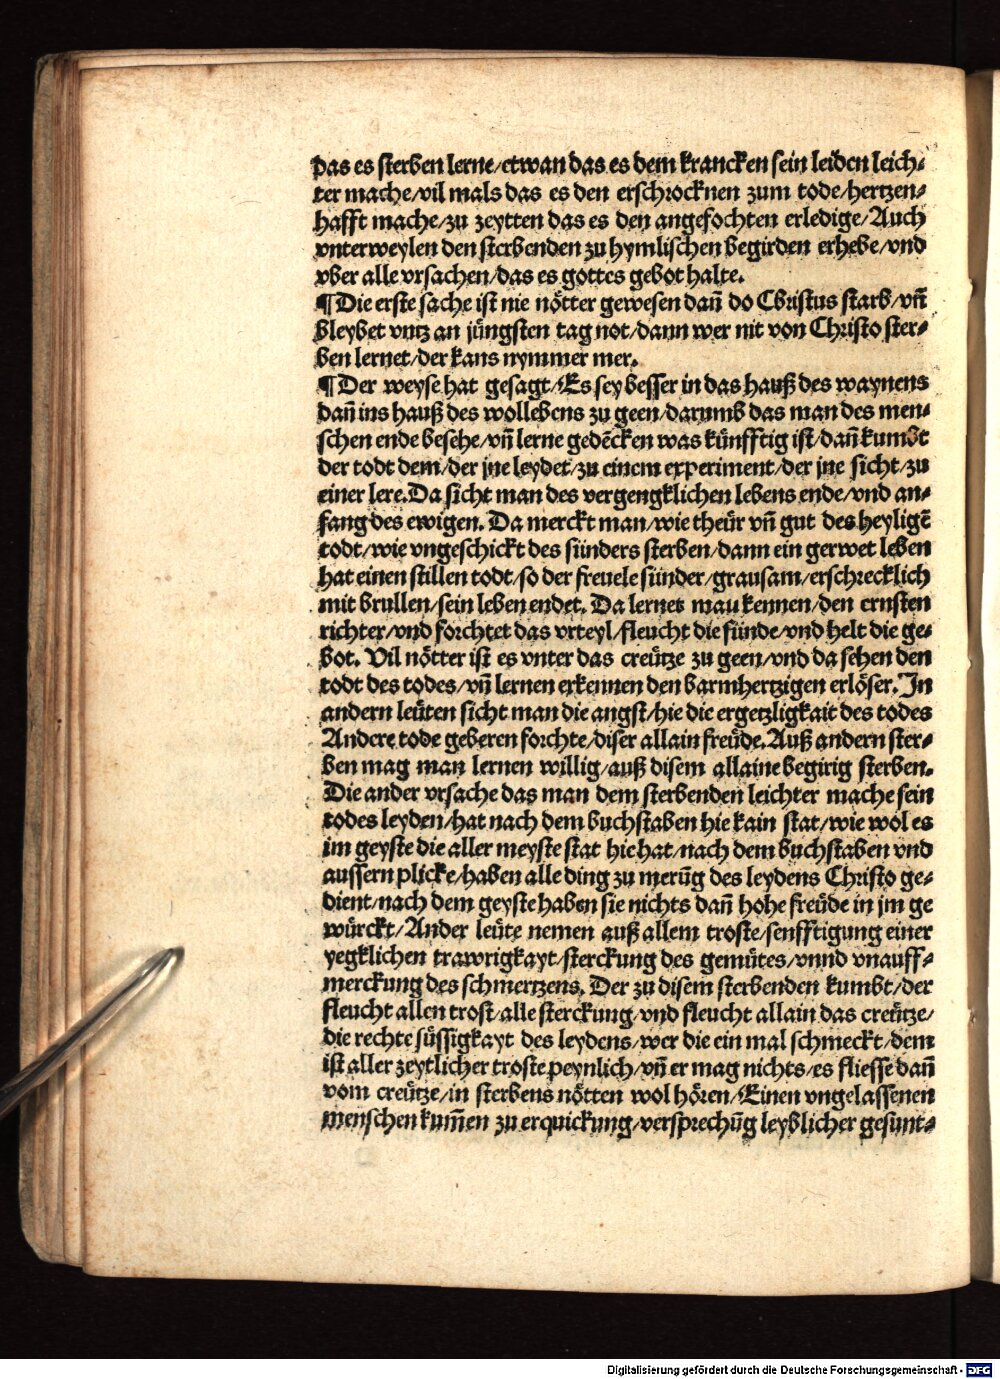 das es sterben lerne/etwan das es dem krancken sein leiden leich⸗
ter mache/vil mals das es den erschrocknen zum tode/hertzen⸗
hafft mache/zu zeytten das es den angefochten erledige/Auch
vnterweylen den sterbenden zu hymlischen begirden erhebe/vnd
vber alle vrsachen/das es gottes gebot halte.
¶Die erste sache ist nie nötter gewesen dañ do Christus starb/vñ
bleybet vntz an jüngsten tag not/dann wer nit von Christo ster⸗
ben lernet/der kans nymmer mer.
¶Der weyse hat gesagt/Es sey besser in das hauß des waynens
dañ ins hauß des wollebens zu geen/darumb das man des men⸗
schen ende besehe/vñ lerne gedēcken was künfftig ist/dañ kumbt
der todt dem/der jne leydet/zu einem experiment/der jne sicht/zu
einer lere.Da sicht man des vergengklichen lebens ende/vnd an⸗
fang des ewigen. Da merckt man/wie theür vñ gut des heyligē
todt/wie vngeschickt des sünders sterben/dann ein gerwet leben
hat einen stillen todt/so der freuele sünder/grausam/erschrecklich
mit brullen/sein leben endet. Da lernet mau kennen/den ernsten
richter/vnd forchtet das vrteyl/fleucht die sünde/vnd helt die ge⸗
bot. Vil nötter ist es vnter das creütze zu geen/vnd da sehen den
todt des todes/vñ lernen erkennen den barmhertzigen erlöser. In
andern leüten sicht man die angst/hie die ergetzligkait des todes
Andere tode geberen forchte/diser allain freüde.Auß andern ster⸗
ben mag man lernen willig/auß disem allaine begirig sterben.
Die ander vrsache das man dem sterbenden leichter mache sein
todes leyden/hat nach dem buchstaben hie kain stat/wie wol es
im geyste die aller meyste stat hie hat/nach dem buchstaben vnd
aussern plicke/haben alle ding zu merūg des leydens Christo ge⸗
dient/nach dem geyste haben sie nichts dañ hohe freüde in jm ge
würckt/Ander leüte nemen auß allem troste/senfftigung einer
yegklichen trawrigkayt/sterckung des gemütes/vnnd vnauff⸗
merckung des schmertzens. Der zu disem sterbenden kumbt/der
fleucht allen trost/alle sterckung/vnd fleucht allain das creütze/
die rechte süssigkayt des leydens/wer die ein mal schmeckt/dem
ist aller zeytlicher troste peynlich/vñ er mag nichts/es fliesse dañ
vom creütze/in sterbens nötten wol hören/Einen vngelassenen
menschen kum̄en zu erquickung/versprechūg leyblicher gesunt⸗
Digitalisierung gefördert durch die Deutsche Forschungsgemeinschaft - DFG